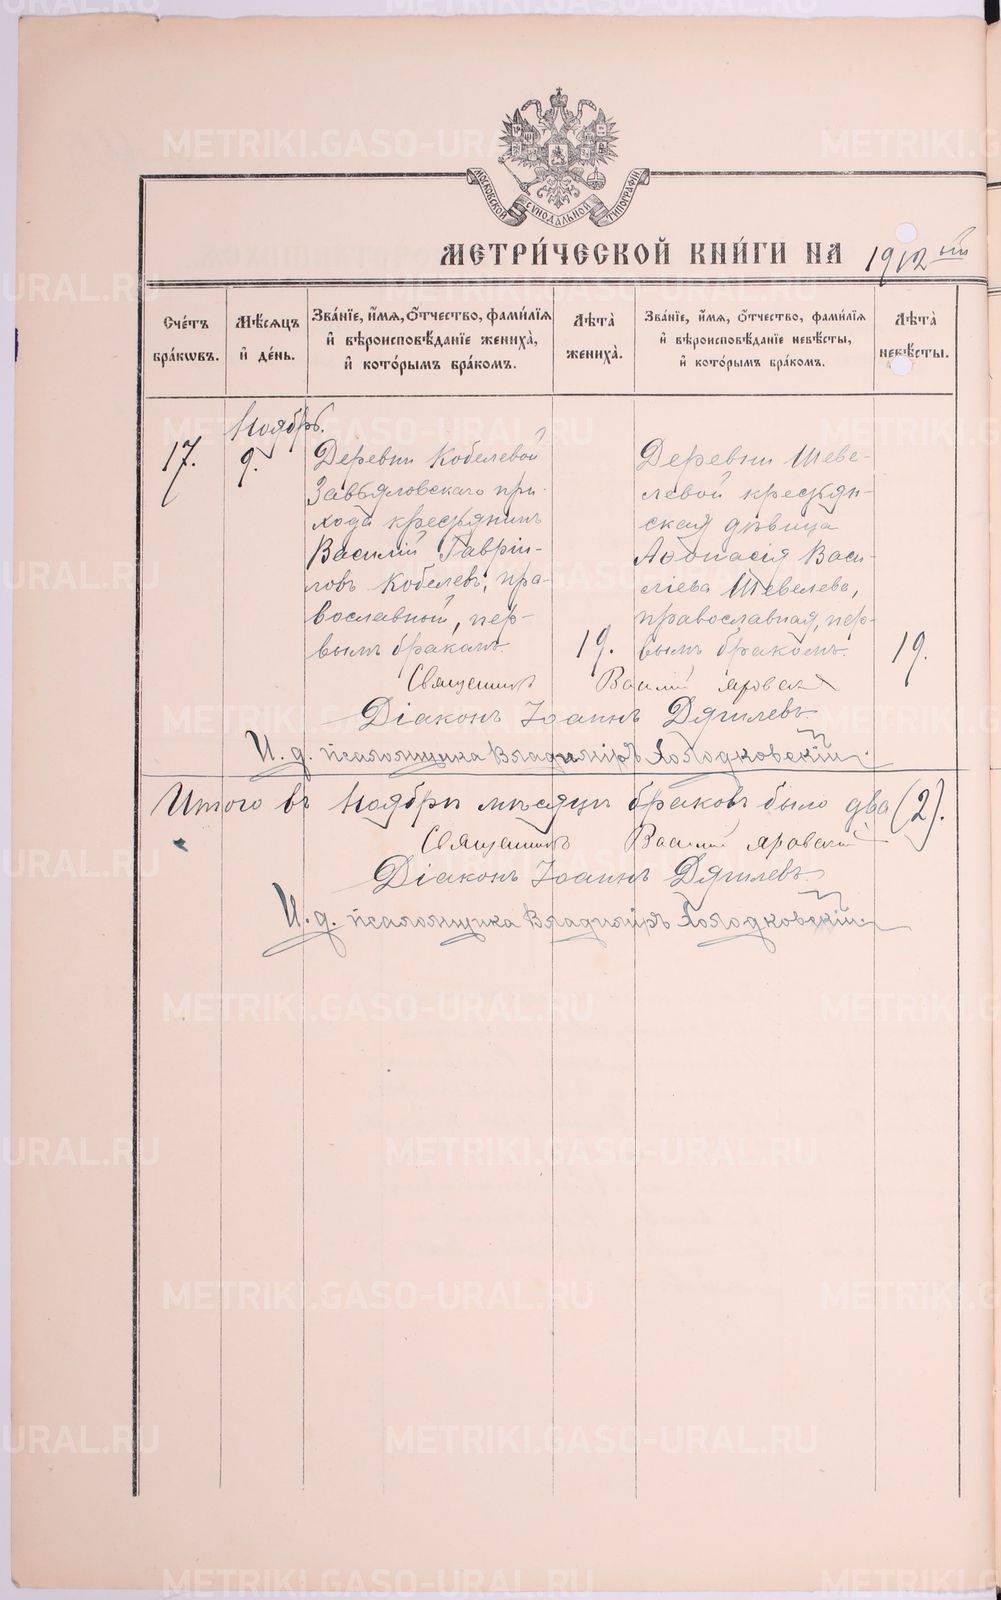 МОСКОВСКОЙ СѴНОДАЛЬНОЙ ТИПОГРАФІИ
МЕТРИ́ЧЕСКОЙ КНИ́ГИ НА 1912 ый
Сче́тъ бра́кѡвъ.
Мѣ́сѧцъ и҆ де́нь.
Зва́нїе, и҆́мѧ, ѻ҆́тчество, фами́лїѧ и҆ вѣроисповѣ́данїе жениха̀, и҆ кото́рымъ бра́комъ.
Лѣ́та̀ жениха̀.
Зва́нїе, и҆́мѧ, ѻ҆́тчество, фами́лїѧ и҆ вѣроисповѣ́данїе невѣ́сты, и҆ кото́рымъ бра́комъ.
Лѣ́та̀ невѣ́сты.
Ноябрь.
17.
9.
Деревни Кобелевой
Завьяловскаго при-
хода крестьянинъ
Василій Гаврии-
ловъ Кобелевъ, пра-
вославной, пер-
вымъ бракомъ.
19.
Деревни Шеве-
левой крестьян-
ская дѣвица
Аѳанасія Васи-
ліева Шевелева,
православная, пер-
вымъ бракомъ.
19.
Священникъ Василій Яровскій
Діаконъ Іоаннъ Дягилевъ
И. д. псаломщика Владиміръ Холодковскій.
Итого въ Ноябрѣ мѣсяцѣ браковъ было два (2).
Священникъ Василій Яровскій
Діаконъ Іоаннъ Дягилевъ.
И. д. псаломщика Владиміръ Холодковскій.
METRIKI.GASO-URAL.RU